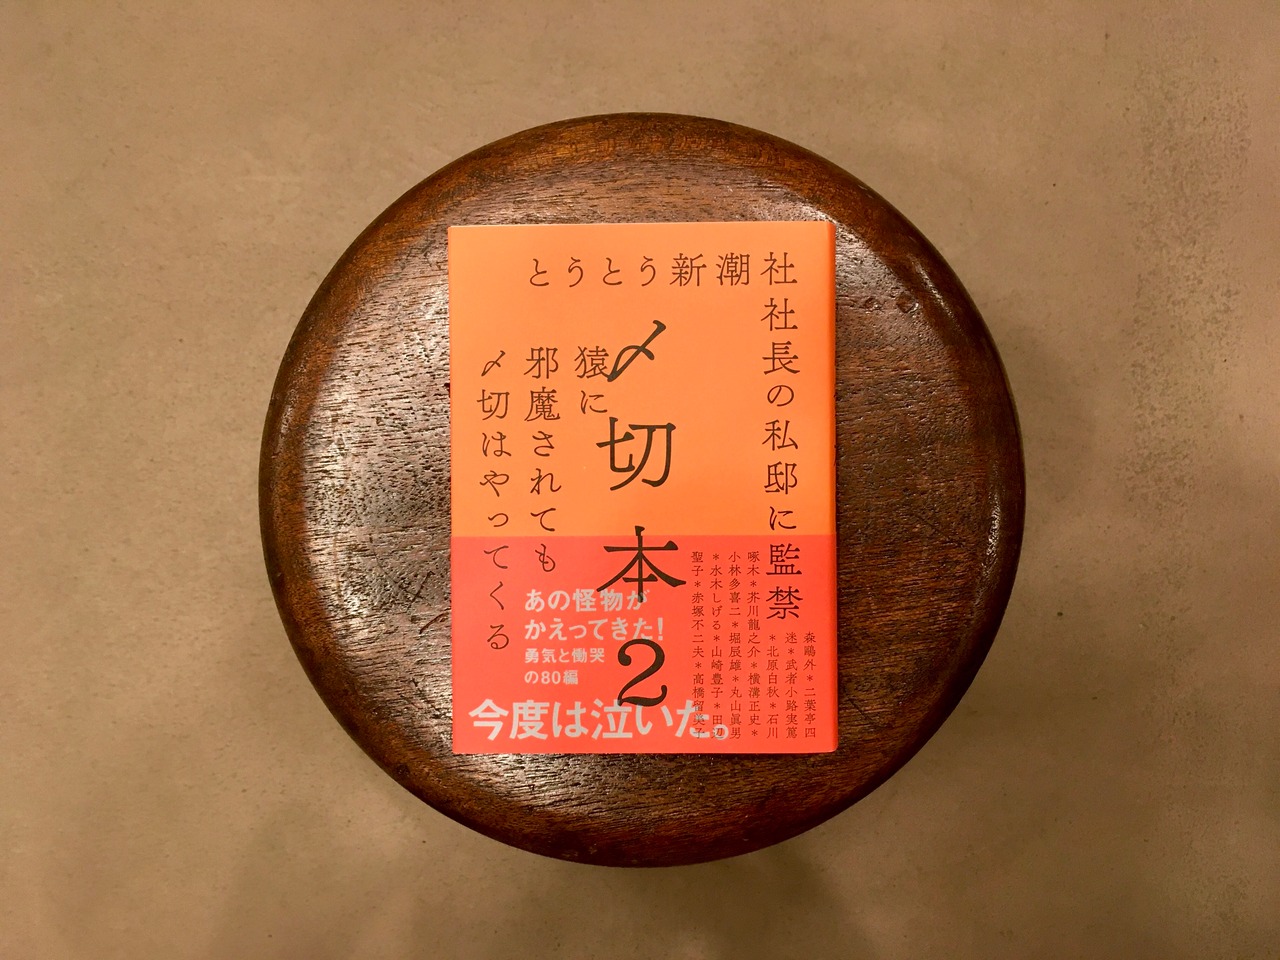 とうとう新潮社
社長の私邸に監禁
〆切本2
猿に
邪魔されても
〆切はやってくる
森鷗外*二葉亭四
迷*武者小路実篤
*北原白秋*石川
啄木*芥川龍之介*横溝正史*
小林多喜二*堀辰雄*丸山眞男
*水木しげる*山崎豊子*田辺
聖子*赤塚不二夫*高橋留美子
あの怪物が
かえってきた!
勇気と慟哭
の80編
今度は泣いた。